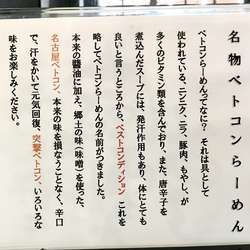 名物ベトコンらーめん
ベトコンらーめんってなに？それは具として
使われている、ニンニク、ニラ、豚肉、もやし、が
多くのビタミン類を含んでおり、また、唐辛子を
煮込んだスープには、発汗作用もあり、体にとても
良いと言うところから、ベストコンディション これを
略してベトコンらーめんの名前がつきました。
本来の醤油に加え、郷土の味（味噌）を使った、
名古屋ベトコン、本来の味を損なうことなく、辛口
で、汗をかいて元気回復、突撃ベトコン、いろいろな
味をお楽しみください。